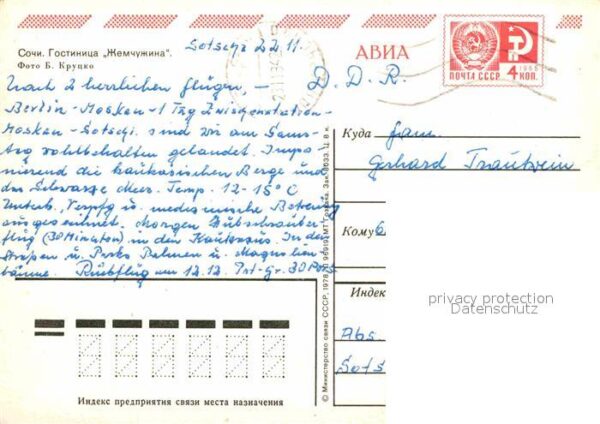 Сочи. Гостиница „Жемчужина".
Фото Б. Круцко
Sotschi 22.11.
АВИА
ПОЧТА СССР 4 КОП.
1966
Nach 2 herrlichen Flügen, –
Berlin – Moskau – 1 Tag Zwischenstation –
Moskau – Sotschi. sind wir am Sams-
tag wohlbehalten gelandet. Impo-
nierend die kaukasischen Berge und
das Schwarze Meer. Temp. 12 – 15° C
Unterk., Verpfg u. medizinische Betreuung
ausgezeichnet. Morgen Hubschrauber-
flug (30 Minuten) in den Kaukasus. In den
Straßen u. Parks Palmen u. Magnolien-
bäume. Rückflug am 12.12.
D. D. R.
Куда Fam.
Gerhard Trautwein
Кому 6
Индекс
privacy protection
Datenschutz
Abs.
Sots
© Министерство связи СССР, 1978.
Индекс предприятия связи места назначения